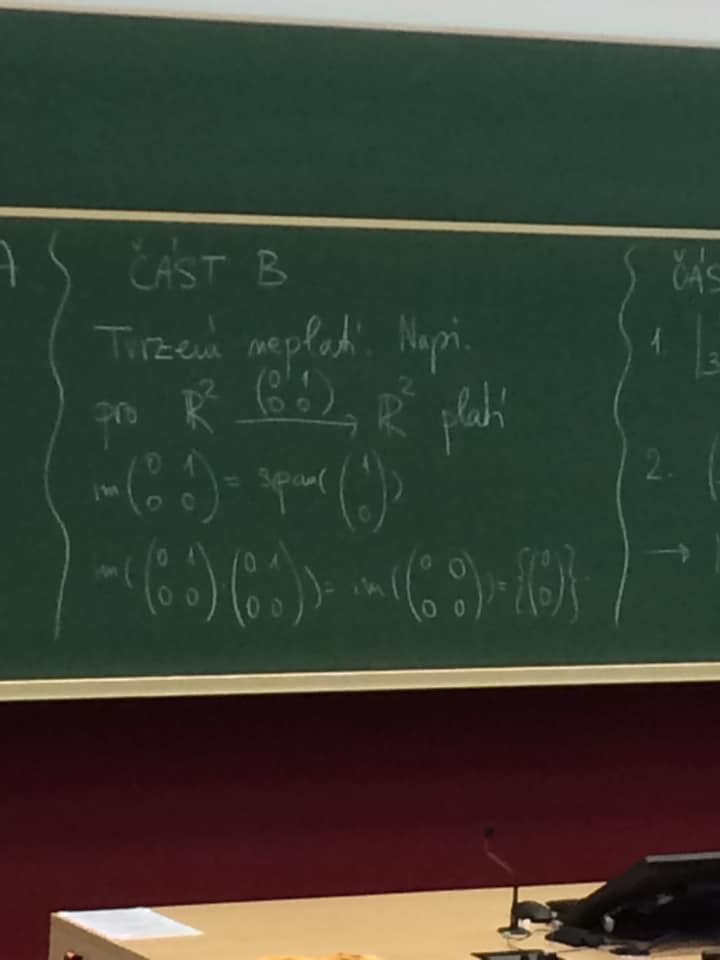 A
ČÁST B
Tvrzení neplatí. Např.
pro ℝ² \xrightarrow{\begin{pmatrix} 0 & 1 \\ 0 & 0 \end{pmatrix}} ℝ² platí
im \begin{pmatrix} 0 & 1 \\ 0 & 0 \end{pmatrix} = span( \begin{pmatrix} 1 \\ 0 \end{pmatrix} )
im( \begin{pmatrix} 0 & 1 \\ 0 & 0 \end{pmatrix} · \begin{pmatrix} 0 & 1 \\ 0 & 0 \end{pmatrix} ) = im( \begin{pmatrix} 0 & 0 \\ 0 & 0 \end{pmatrix} ) = { \begin{pmatrix} 0 \\ 0 \end{pmatrix} }.
ČÁS
1.
2.
→